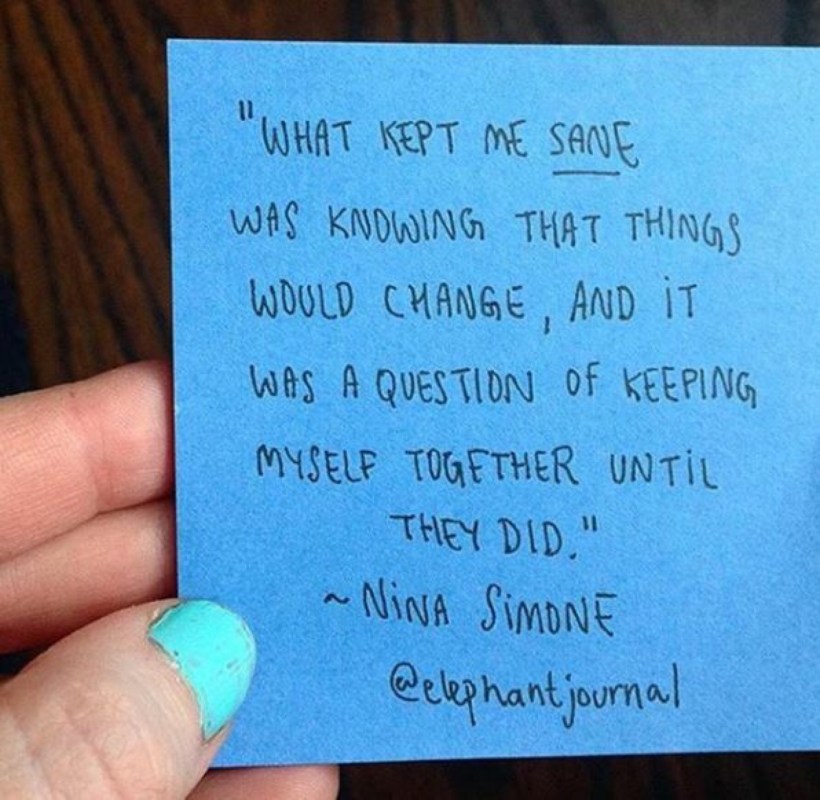 "WHAT KEPT ME SANE
WAS KNOWING THAT THINGS
WOULD CHANGE, AND IT
WAS A QUESTION OF KEEPING
MYSELF TOGETHER UNTIL
THEY DID."
~ NINA SIMONE
@elephantjournal